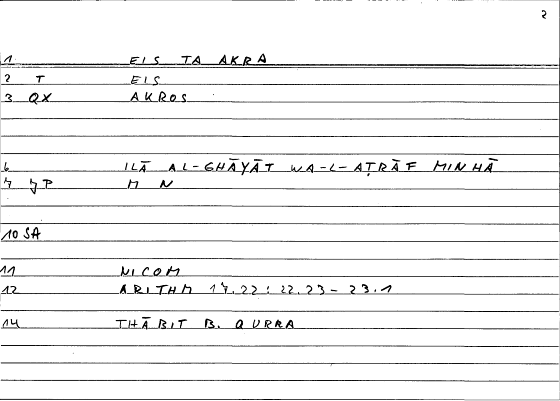 2
1 EIS TA AKRA
2 T EIS
3 QX AKROS
6 ILĀ AL-GHĀYĀT WA-L-AṬRĀF MINHĀ
7 YP M N
10 SA
11 NICOM
12 ARITHM 17.22 : 22.23 - 23.1
14 THĀBIT B. QURRA